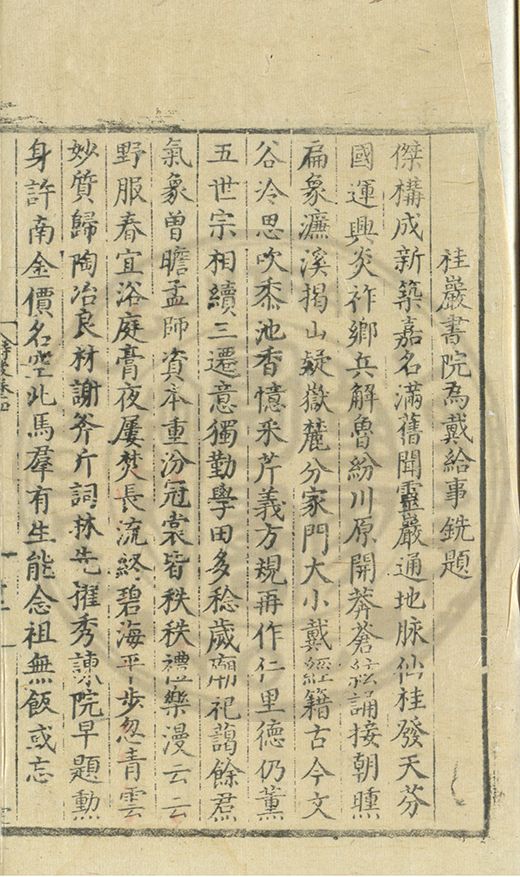 桂巖書院為戴給事銑題
傑構成新築嘉名滿舊聞靈巖通地脉仙桂發天芬
國運興炎祚鄉兵解魯紛川原開莽蒼絃誦接朝曛
扁象濂溪揭山疑嶽麓分家門大小戴經籍古今文
谷冷思吹黍池香憶采芹義方規再作仁里德仍薰
五世宗相續三遷意獨勤學田多稔歲廟祀藹餘焄
氣象曾瞻孟師資本重汾冠裳皆秩秩禮樂漫云云
野服春宜浴庭膏夜屢焚長流終碧海平步忽青雲
妙質歸陶冶良材謝斧斤詞林先擢秀諫院早題勲
身許南金價名空北馬羣有生能念祖無飯或忘